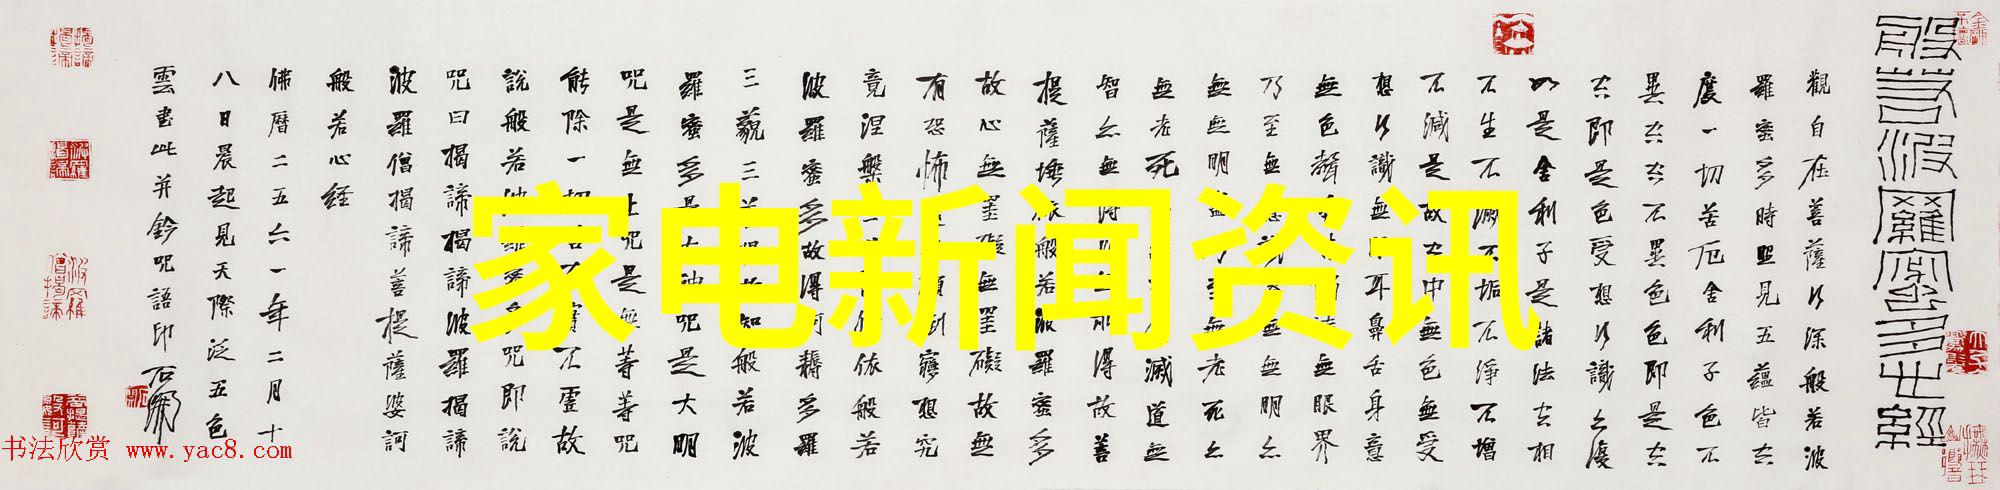 般若波羅蜜多心經
觀自在菩薩行深般若波
羅蜜多時照見五蘊皆空
度一切苦厄舍利子色不
異空空不異色色即是空
空即是色受想行識亦復
如是舍利子是諸法空相
不生不滅不垢不淨不增
不減是故空中無色無受
想行識無眼耳鼻舌身意
無色聲無眼界
乃至無無無明亦
無無明至無老死亦
無老死滅道無
智亦無得所得故菩
提薩埵依般若波羅蜜多
故心無罣礙無罣礙故無
有恐怖顛倒夢想究
竟涅槃依般若
波羅蜜多故得阿耨多羅
三藐三知般若波
羅蜜多是大神咒是大明
咒是無上咒是無等等咒
能除一切不虛故
說般若波羅多咒即說
咒曰揭諦揭諦波羅揭諦
波羅僧揭諦菩提薩婆訶
般若心經
佛曆二五六一年二月十
八日晨起見天際泛五色
雲書此并鈐咒語印
家电新闻资讯
书法欣赏 www.yac8.com